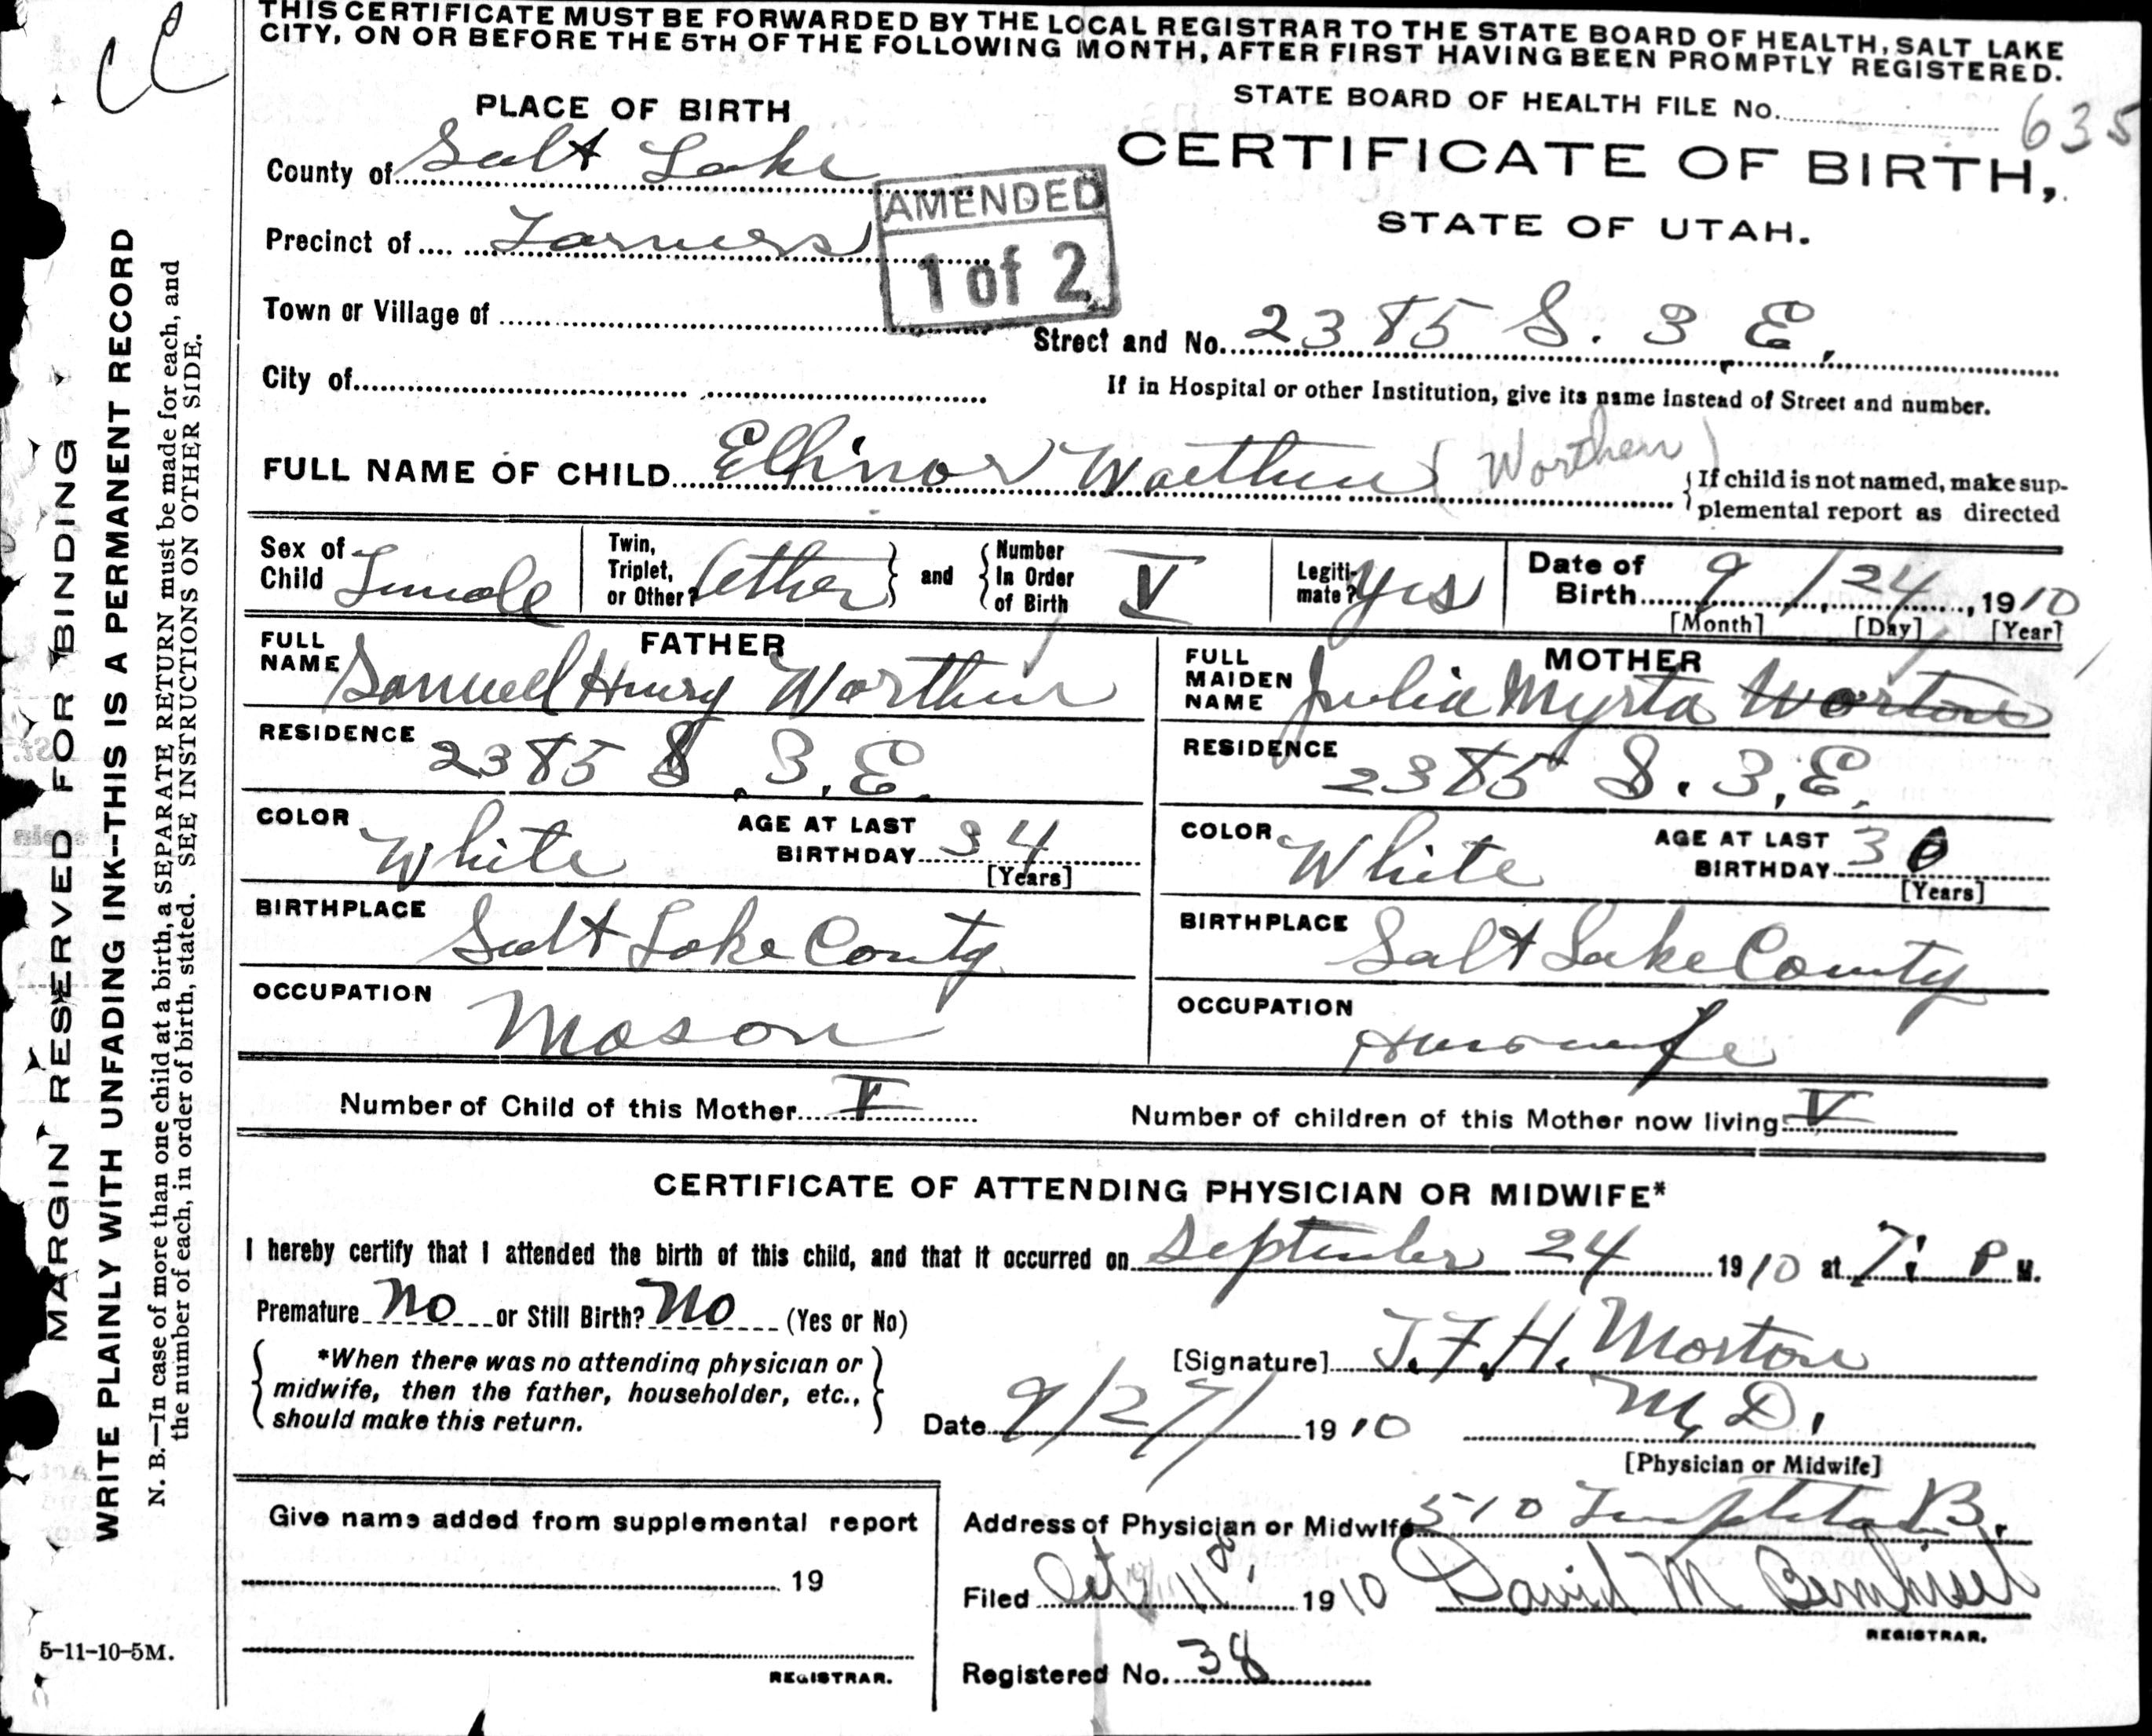 THIS CERTIFICATE MUST BE FORWARDED BY THE LOCAL REGISTRAR TO THE STATE BOARD OF HEALTH, SALT LAKE
CITY, ON OR BEFORE THE 5TH OF THE FOLLOWING MONTH, AFTER FIRST HAVING BEEN PROMPTLY REGISTERED.
STATE BOARD OF HEALTH FILE No. 635
PLACE OF BIRTH
CERTIFICATE OF BIRTH,
STATE OF UTAH.
County of Salt Lake
AMENDED
1 of 2
Precinct of Farmers
Town or Village of
Street and No. 2385 S. 3 E.
City of
If in Hospital or other Institution, give its name instead of Street and number.
FULL NAME OF CHILD Ellinor Worthen (Worthen)
{If child is not named, make sup-
plemental report as directed
Sex of Child Female
Twin, Triplet, or Other? other } and { Number In Order of Birth V
Legiti-mate? Yes
Date of Birth 9/24, 1910
[Month] [Day] [Year]
FATHER
FULL NAME Samuel Henry Worthen
RESIDENCE 2385 S. 3. E.
COLOR White
AGE AT LAST BIRTHDAY 34
[Years]
BIRTHPLACE Salt Lake County
OCCUPATION Mason
MOTHER
FULL MAIDEN NAME Julia Myrta
RESIDENCE 2385 S. 3, E.
COLOR White
AGE AT LAST BIRTHDAY 30
[Years]
BIRTHPLACE Salt Lake County
OCCUPATION Housewife
Number of Child of this Mother V
Number of children of this Mother now living V
CERTIFICATE OF ATTENDING PHYSICIAN OR MIDWIFE*
I hereby certify that I attended the birth of this child, and that it occurred on September 24 1910 at 7: P M.
Premature No or Still Birth? No (Yes or No)
{ *When there was no attending physician or
midwife, then the father, householder, etc.,
should make this return. }
[Signature] T.F.H. Morton
M.D.
Date 9/27/ 1910
[Physician or Midwife]
Give name added from supplemental report
19
REGISTRAR.
Address of Physician or Midwife 510 Templeton B.
Filed Oct 11 1910 David M Bernhisel
REGISTRAR.
Registered No. 38
MARGIN RESERVED FOR BINDING
WRITE PLAINLY WITH UNFADING INK--THIS IS A PERMANENT RECORD
N. B.—In case of more than one child at a birth, a SEPARATE RETURN must be made for each, and
the number of each, in order of birth, stated. SEE INSTRUCTIONS ON OTHER SIDE.
5-11-10-5M.